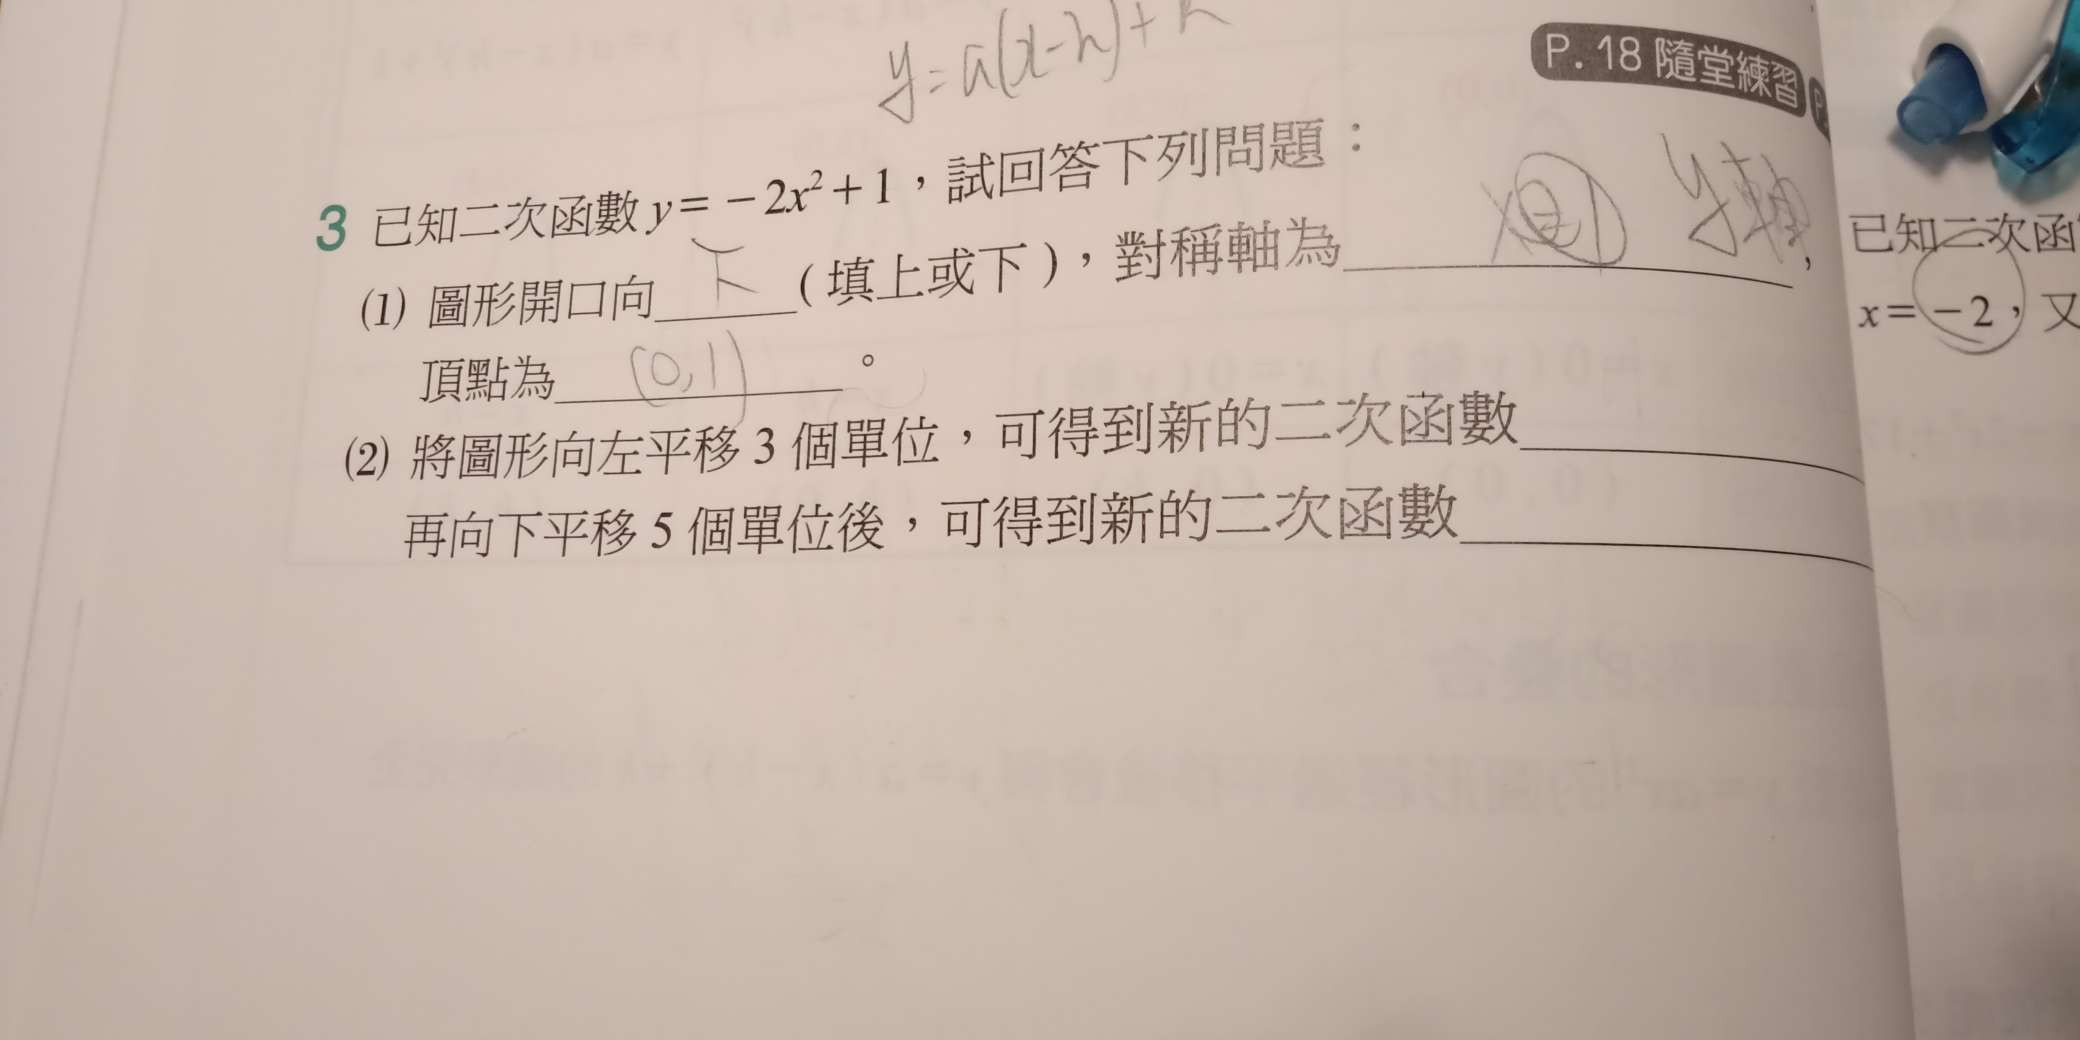 y=a(x-h)+k
P.18 隨堂練習
3 已知二次函數 y=-2x²+1，試回答下列問題：
(1) 圖形開口向 下 (填上或下)，對稱軸為 y軸 ，
頂點為 (0,1) 。
(2) 將圖形向左平移 3 個單位，可得到新的二次函數
再向下平移 5 個單位後，可得到新的二次函數
已知二次函
x=-2，又